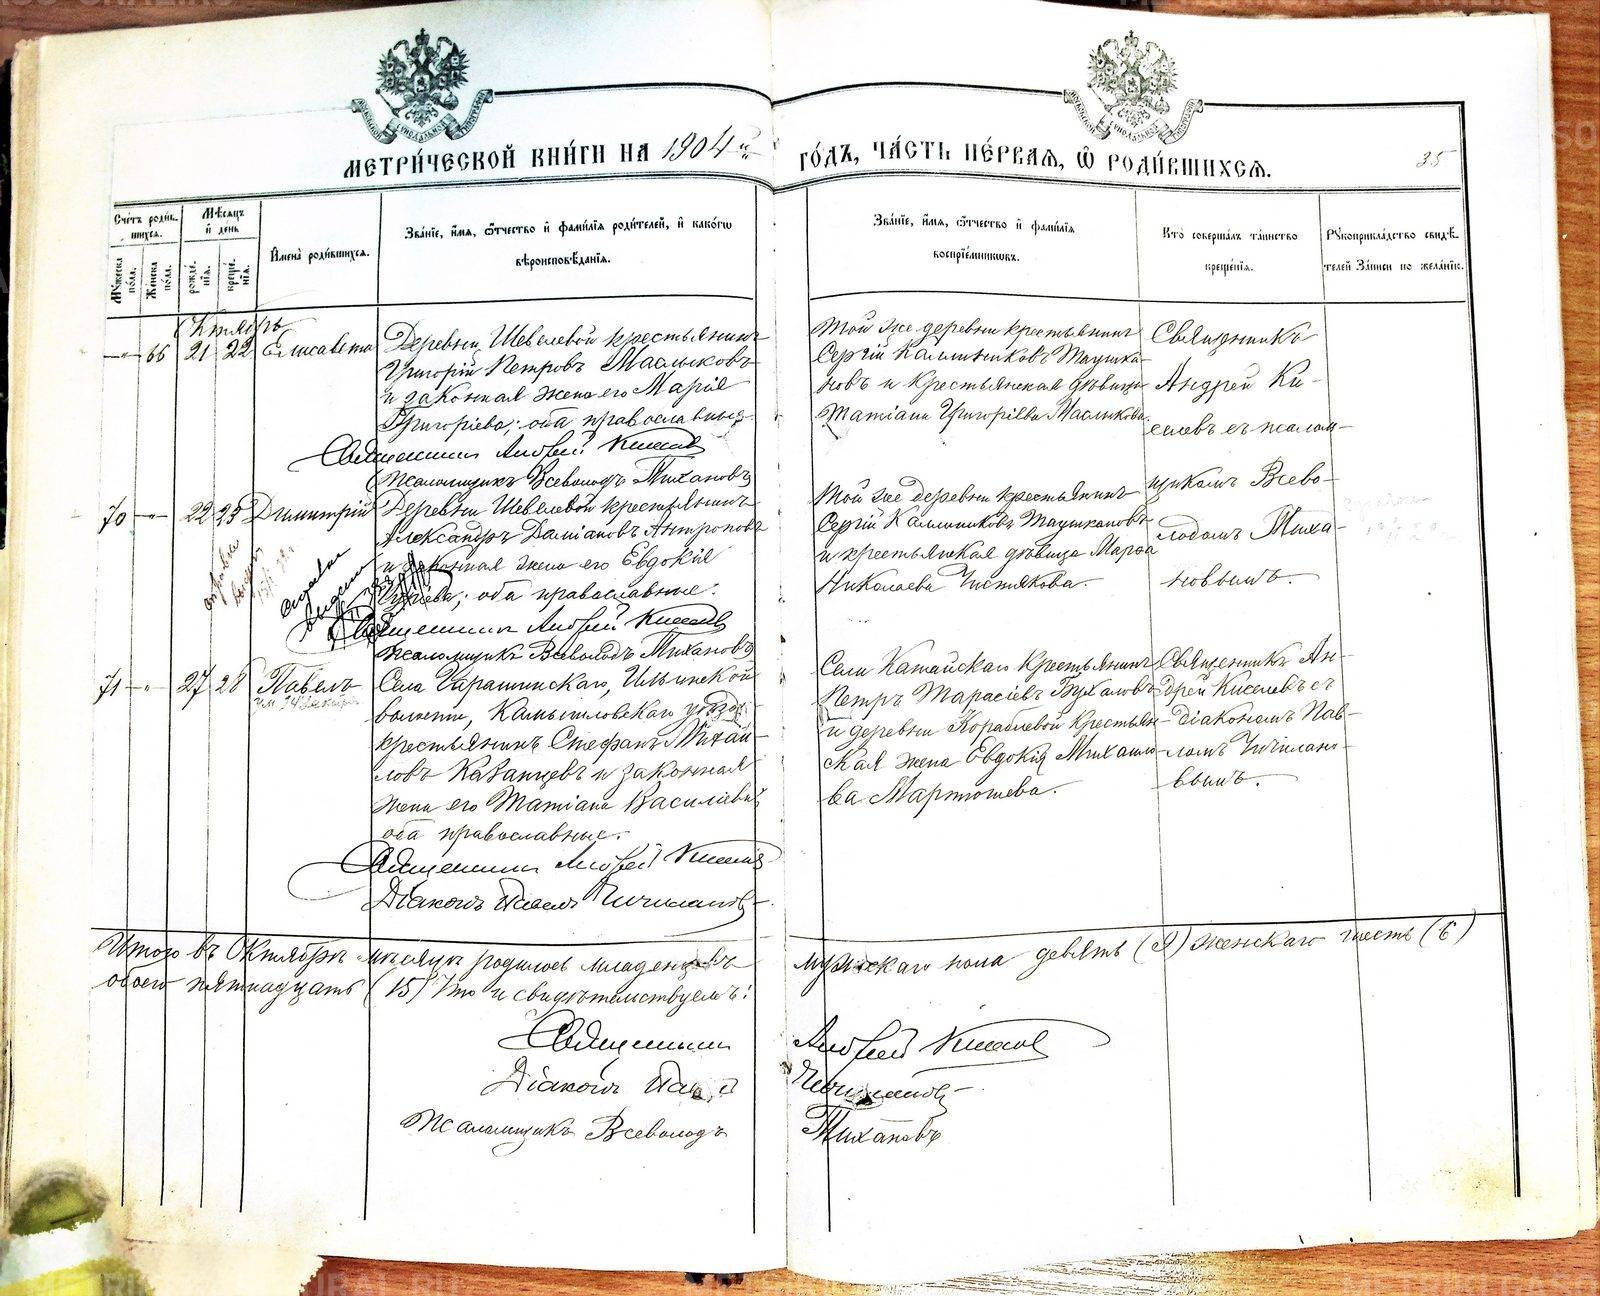 МЕТРИ́ЧЕСКОЙ КНИ́ГИ НА 1904й
ГО́ДЪ, ЧА́СТЬ ПЕ́РВАЯ, Ѡ҆ РОДИ́ВШИХСЯ.
35
Сче́тъ роди́вшихся.
Му́жеска по́ла.
Же́нска по́ла.
Мѣ́сяцъ и҆ де́нь
рожде́нїя.
креще́нїя.
И҆мена̀ роди́вшихся.
Зва́нїе, и҆́мя, ѻ҆́тчество и҆ фами́лїя роди́телей, и҆ како́гѡ
вѣроисповѣ́данїя.
Зва́нїе, и҆́мя, ѻ҆́тчество и҆ фами́лїя
воспрїе́мниковъ.
Кто̀ соверша́лъ та́инство
креще́нїя.
Рꙋкоприкла́дство свидѣ́-
телей за́писи по жела́нїю.
Октябрь
66 21 22 Елисавета
Деревни Шевелевой крестьянинъ
Григорій Петровъ Маслыковъ
и законная жена его Марія
Григоріева; оба православные
Священникъ Андрей Киселевъ
Псаломщикъ Всеволодъ Тихановъ
Той же деревни крестьянинъ
Сергій Каллиниковъ Таушка-
новъ и крестьянская дѣвица
Татіана Григоріева Маслыкова.
Священникъ
Андрей Ки-
селевъ съ псалом-
щикомъ Всево-
лодомъ Тиха-
новымъ.
70 22 25 Димитрій
Деревни Шевелевой крестьянинъ
Александръ Даміановъ Антроповъ
и законная жена его Евдокія
оба православные.
Священникъ Андрей Киселевъ
Псаломщикъ Всеволодъ Тихановъ
Той же деревни крестьянинъ
Сергій Каллиниковъ Таушкановъ
и крестьянская дѣвица Марѳа
Николаева Чистякова.
справка
выдана
71 27 28 Павелъ
Села Гарашинскаго, Ильинской
волости, Камышловскаго уѣзда
крестьянинъ Стефанъ Михай-
ловъ Казанцевъ и законная
жена его Татіана Василіева
оба православные.
Священникъ Андрей Киселевъ
Діаконъ Павелъ Чичилановъ
Села Катайскаго крестьянинъ
Петръ Тарасіевъ Бухаловъ
и деревни Кораблевой крестьян-
ская жена Евдокія Михаило-
ва Мартюшева.
Священникъ Ан-
дрей Киселевъ съ
діакономъ Пав-
ломъ Чичилано-
вымъ.
Итого въ Октябрѣ мѣсяцѣ родилось младенцевъ мужскаго пола девять (9) женскаго шесть (6)
обоего пятнадцать (15) Что и свидѣтельствуемъ:
Священникъ Андрей Киселевъ
Діаконъ Павелъ Чичилановъ
Псаломщикъ Всеволодъ Тихановъ